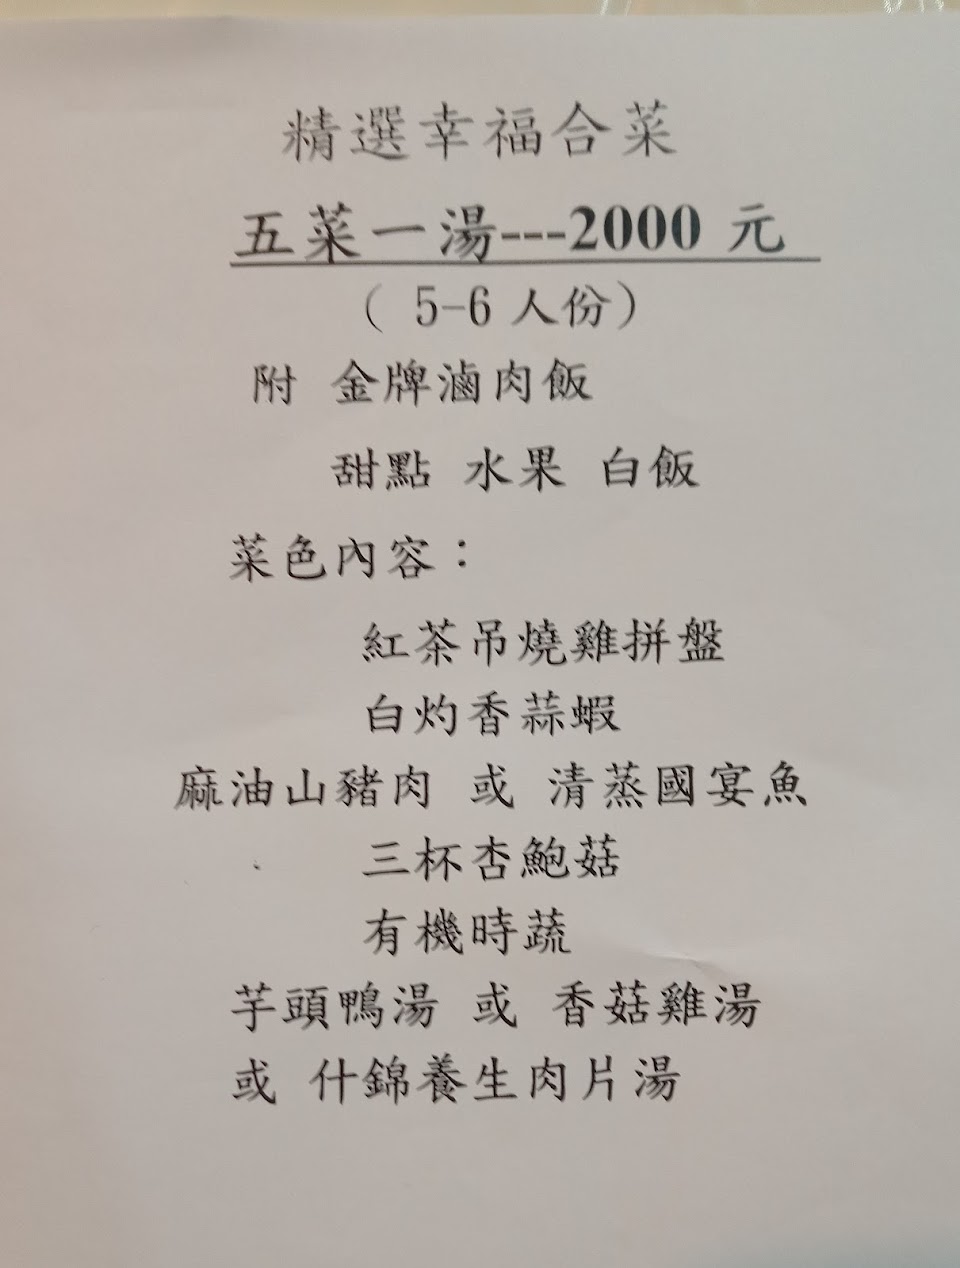 精選幸福合菜
五菜一湯---2000 元
( 5-6 人份)
附 金牌滷肉飯
甜點 水果 白飯
菜色內容：
紅茶吊燒雞拼盤
白灼香蒜蝦
麻油山豬肉 或 清蒸國宴魚
三杯杏鮑菇
有機時蔬
芋頭鴨湯 或 香菇雞湯
或 什錦養生肉片湯